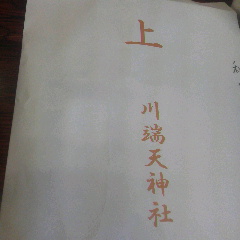 上
川端天神社